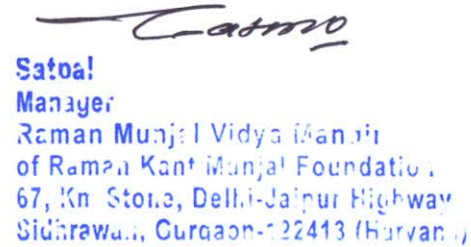 Satpal
Manager
Raman Munjal Vidya Mandir
of Raman Kant Munjal Foundation
67, Km Stone, Delhi-Jaipur Highway
Sidhrawali, Gurgaon-122413 (Haryana)